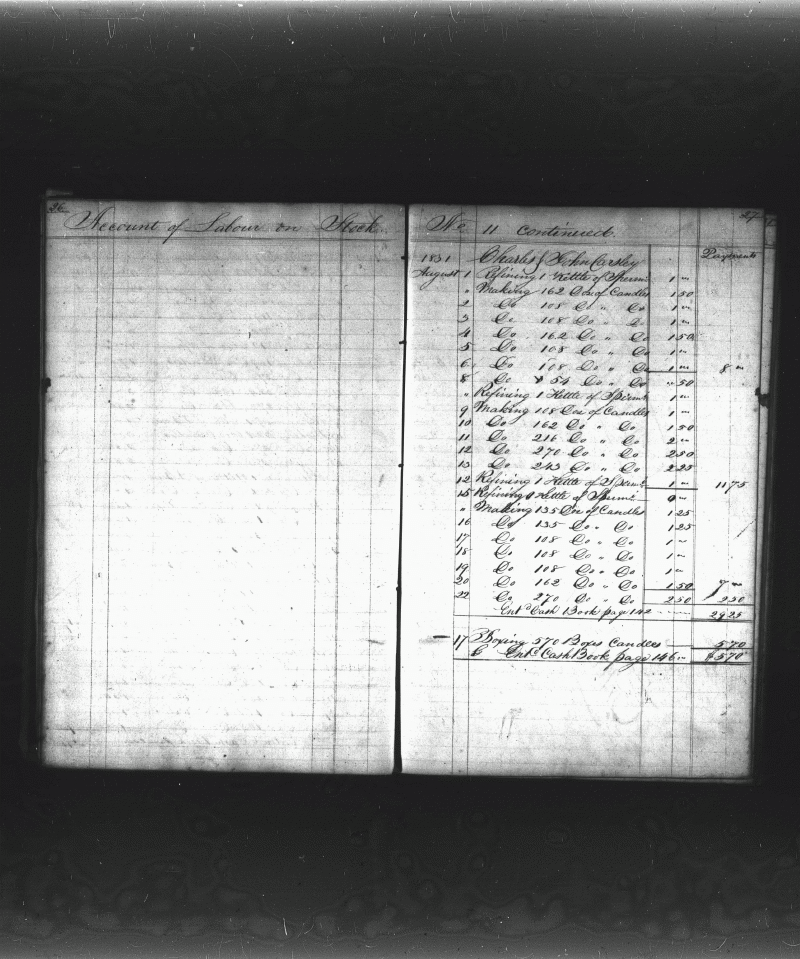 26
Account of Labour on Stock
27
No 11 continued.
1831 Charles & John Payments
August 1 Refining 1 Kettle of Sperm 1 "
" Making 162 Doz of Candles 1 50
2 Do 108 Do " Do 1 "
3 Do 108 Do " Do 1 "
4 Do 162 Do " Do 1 50
5 Do 108 Do " Do 1 "
6 Do 108 Do " Do 1 " 8 "
8 Do 54 Do " Do " 50
" Refining 1 Kettle of Sperm 1 "
9 Making 108 Doz of Candles 1 "
10 Do 162 Do " Do 1 50
11 Do 216 Do " Do 2 "
12 Do 270 Do " Do 2 50
13 Do 243 Do " Do 2 25
12 Refining 1 Kettle of Sperm 1 " 11 75
15 Refining Kettle of Sperm
" Making 135 Doz of Candles 1 25
16 Do 135 Do " Do 1 25
17 Do 108 Do " Do 1 "
18 Do 108 Do " Do 1 "
19 Do 108 Do " Do 1 "
20 Do 162 Do " Do 1 50 7 "
22 Do 270 Do " Do 2 50 2 50
Entd Cash Book page 142 29 25
17 Boxing 570 Boxes Candles 5 70
Entd Cash Book page 146 " $5 70